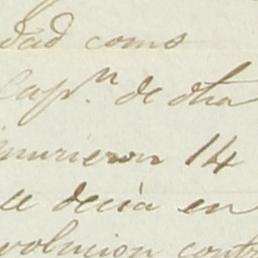 dad como
Cap.ⁿ de dha
murieron 14
se decia en
volucion contr